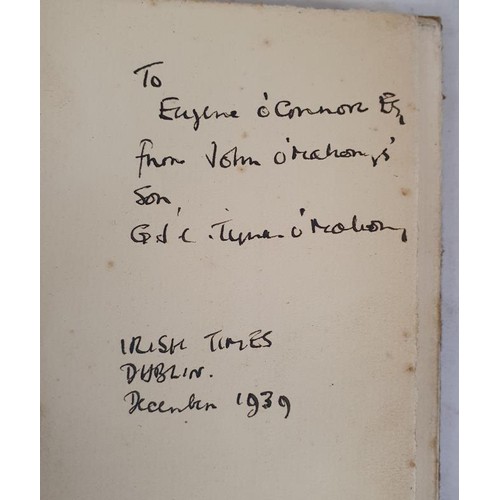 To
Eugene O'Connor Esq
from John O'Mahony's
Son,
G. J. C. Tynan O'Mahony
IRISH TIMES
DUBLIN.
December 1939